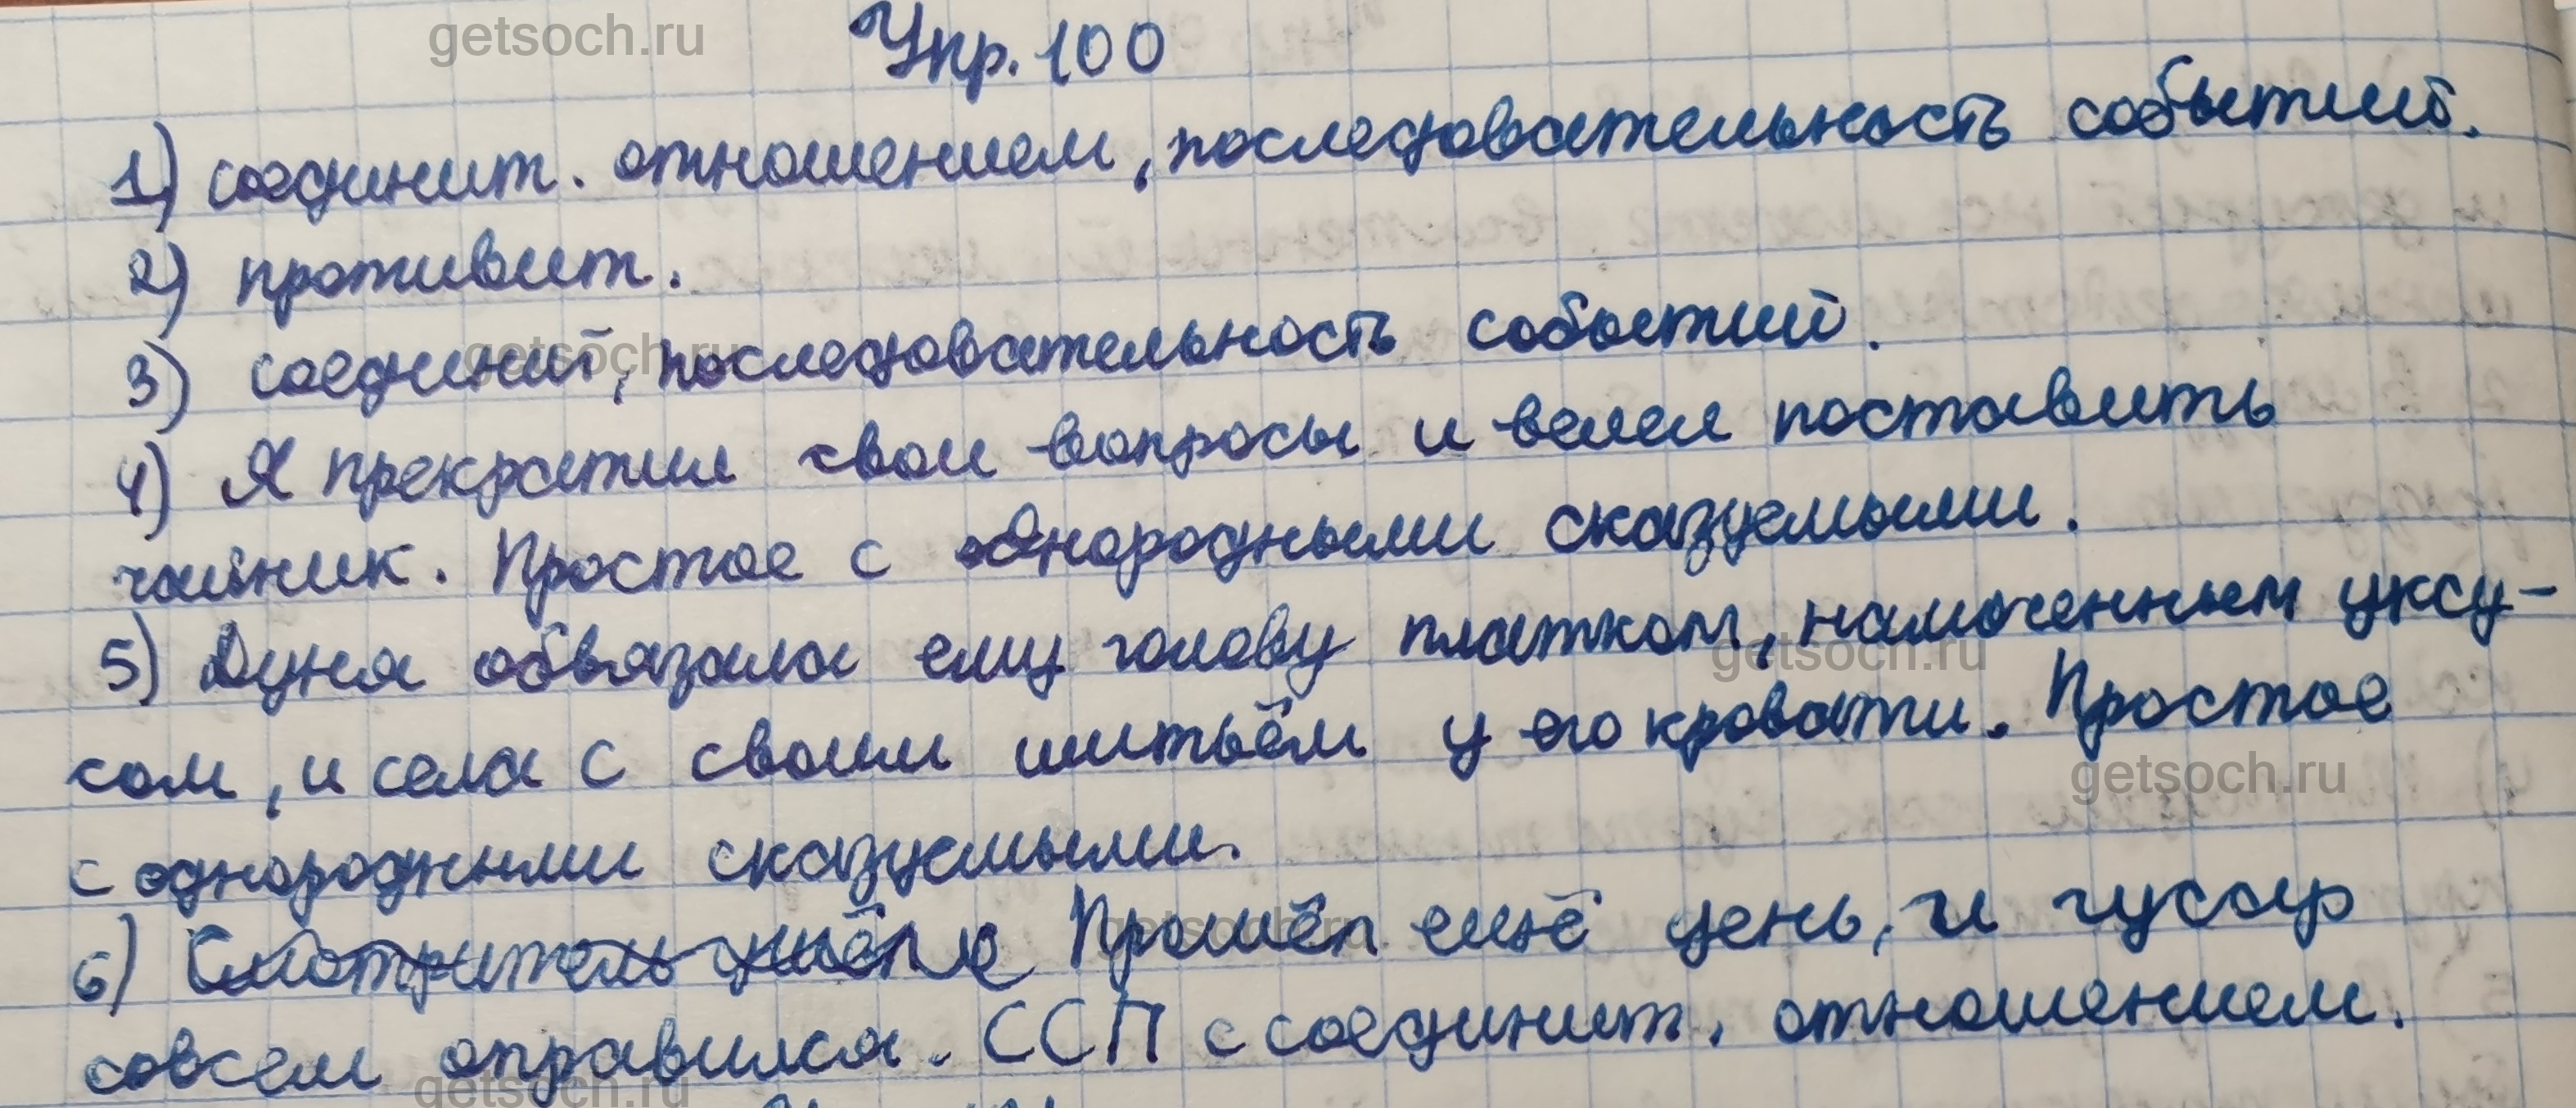 getsoch.ru
Упр. 100
1) соединит. отношением, последовательность событий.
2) противит.
getsoch.ru
3) соединит, последовательность событий.
4) Я прекратил свои вопросы и велел поставить
чайник. Простое с однородными сказуемыми.
5) Дуня обвязала ему голову платком, намоченным уксу-
getsoch.ru
сом, и села с своим шитьём у его кровати. Простое
getsoch.ru
с однородными сказуемыми.
6) Смотритель Прошёл ещё день, и гусар
getsoch.ru
совсем оправился. ССП с соединит. отношением.
getsoch.ru